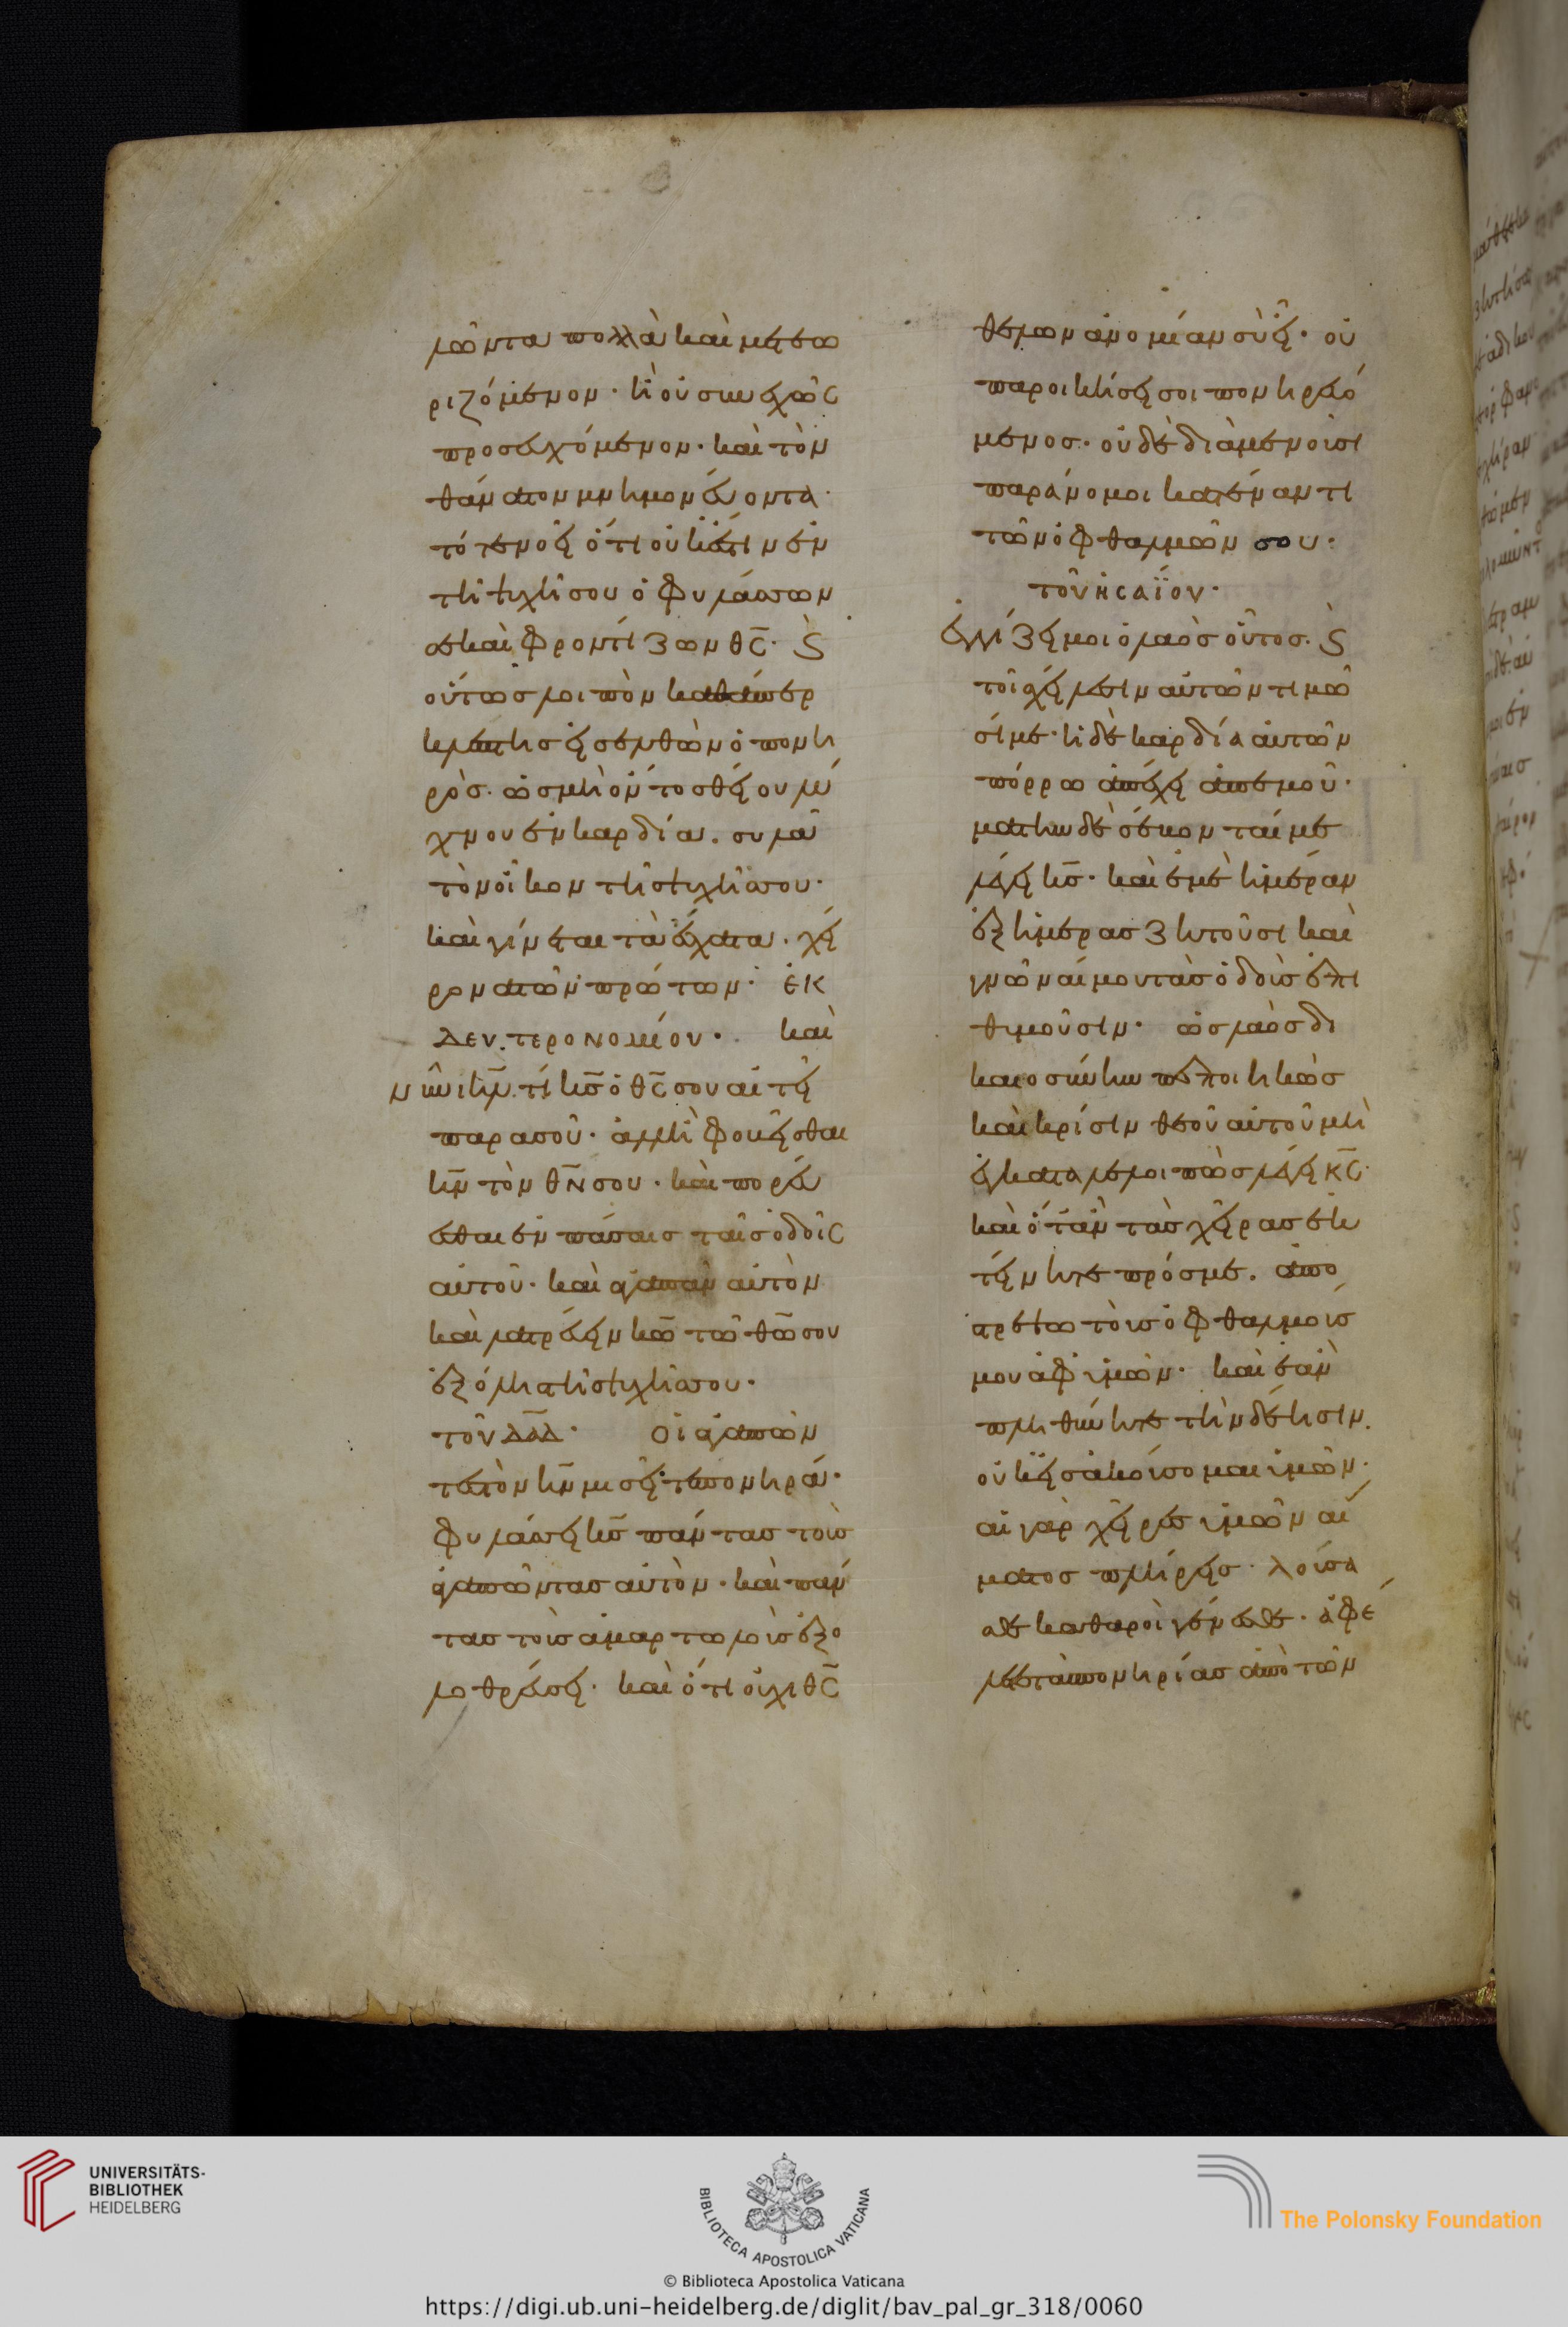 λῶντα πολλὰ καὶ μετεω
ριζόμενον· ἢ οὐ συνεχῶς
προσευχόμενον· καὶ τὸν
θάνατον μνημονεύοντα·
τότε νοεῖ ὅτι οὐκ ἔστιν ἐν
τῆ ψυχῆ σου ὁ φυλάσσων
σε καὶ φροντίζων θς̅· ϗ
οὕτως λοιπὸν καθάπερ
κλέπτης εἰσελθὼν ὁ πονη
ρὸς· ὡς μὴ ὄντος θείου λύ
χνου ἐν καρδία· συλᾶ
τὸν οἶκον τῆς ψυχῆς σου·
καὶ γίνεται τὰ ἔσχατα· χεί
ρονα τῶν πρώτων· ἐκ
Δευτερονομίου· καὶ
νῦν ιη̅λ τί κς̅ ὁ θς̅ σου αἰτεῖ
παρα σοῦ· ἀλλ' ἢ φοβεῖσθαι
κν̅ τὸν θν̅ σου· καὶ πορεύ
εσθαι ἐν πάσαις ταῖς ὁδοῖς
αὐτοῦ· καὶ ἀγαπᾶν αὐτὸν
καὶ λατρεύειν κω̅ τῶ θω̅ σου
ἐξ ὅλης τῆς ψυχῆς σου·
τοῦ Δα̅Δ· Οἱ ἀγαπῶν
τες τὸν κν̅ μισεῖτε πονηρά·
φυλάσσει κς̅ πάντας τοὺς
ἀγαπῶντας αὐτὸν· καὶ πάν
τας τοὺς ἁμαρτωλοὺς ἐξο
λοθρεύσει· καὶ ὅτι οὐχι θς̅
θέλων ἀνομίαν σὺ εἶ· οὐ
παροικήσει σοι πονηρευό
μενος· οὐδὲ διαμενοῦσι
παράνομοι κατέναντι
τῶν ὀφθαλμῶν σου·
τοῦ ἡσαΐου·
ἐγγίζει μοι ὁ λαὸς οὗτος· ϗ
τοῖς χείλεσιν αὐτῶν τιμῶ
σί με· ἡ δὲ καρδία αὐτῶν
πόρρω ἀπέχει ἀπ' ἐμοῦ·
ματην δὲ σέβονταί με
λέγει κς̅· καὶ ἐμὲ ἡμέραν
ἐξ ἡμέρας ζητοῦσι καὶ
γνῶναί μου τὰς ὁδοὺς ἐπι
θυμοῦσιν· ὡς λαὸς δι
καιοσύνην πεποιηκὼς
καὶ κρίσιν θεοῦ αὐτοῦ μὴ
ἐγκαταλελοιπὼς λέγει κς̅·
καὶ ὅταν τὰς χεῖρας ἐκ
τείνητε πρός με· ἀπο
στρέψω τοὺς ὀφθαλμούς
μου ἀφ' ὑμῶν· καὶ ἐὰν
πληθύνητε τὴν δέησιν·
οὐκ εἰσακούσομαι ὑμῶν·
αἱ γὰρ χεῖρες ὑμῶν αἵ
ματος πλήρεις· λούσα
σθε καθαροὶ γένεσθε· ἀφέ
λετε τὰς πονηρίας ἀπὸ τῶν
UNIVERSITÄTS-
BIBLIOTHEK
HEIDELBERG
BIBLIOTECA APOSTOLICA VATICANA
© Biblioteca Apostolica Vaticana
The Polonsky Foundation
https://digi.ub.uni-heidelberg.de/diglit/bav_pal_gr_318/0060